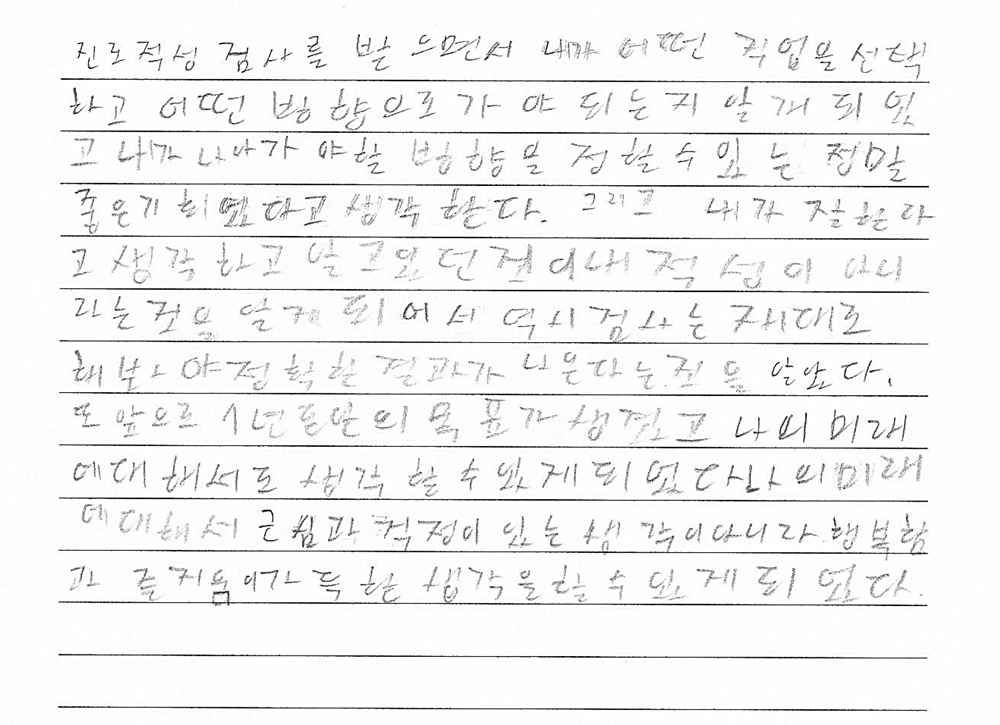 진로적성 검사를 받으면서 내가 어떤 직업을 선택
하고 어떤 방향으로 가야 되는지 알게 되었
고 내가 나아가야할 방향을 정할 수 있는 정말
좋은기회였다고 생각한다. 그리고 내가 잘한다
고 생각하고 알고있던것이내 적성이 아니
라는것을 알게 되어서 역시검사는 제대로
해보아야정확한 결과가 나온다는것을 알았다.
또 앞으로 1년동안의 목표가 생겼고 나의 미래
에대해서도 생각 할 수 있게되었다나의미래
에대해서 근심과 걱정이 있는 생각이아니라 행복함
과 즐거움이가득한 생각을할 수 있게 되었다.